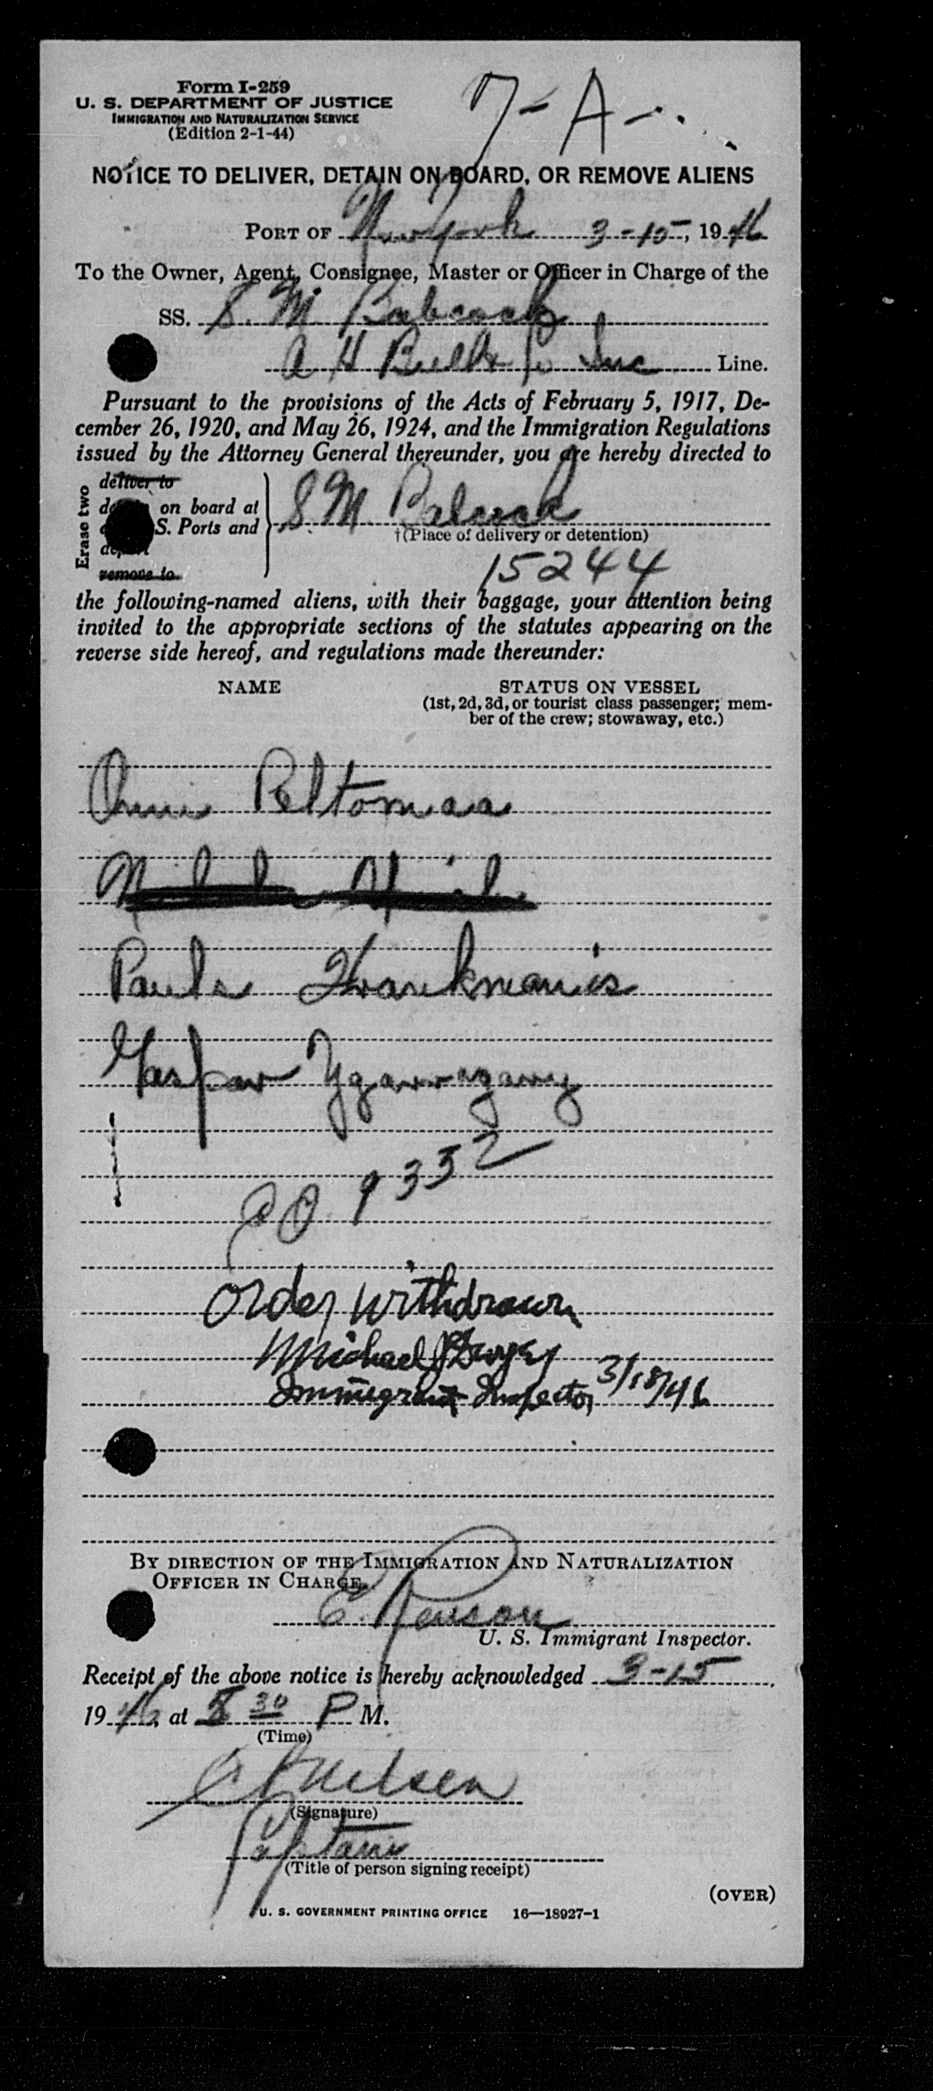 Form I-259
U. S. DEPARTMENT OF JUSTICE
IMMIGRATION AND NATURALIZATION SERVICE
(Edition 2-1-44)
7-A-.
NOTICE TO DELIVER, DETAIN ON BOARD, OR REMOVE ALIENS
PORT OF New York 3-15, 1946
To the Owner, Agent, Consignee, Master or Officer in Charge of the
SS. S. M Babcock
A H Bull & Co Inc Line.
Pursuant to the provisions of the Acts of February 5, 1917, De-
cember 26, 1920, and May 26, 1924, and the Immigration Regulations
issued by the Attorney General thereunder, you are hereby directed to
Erase two
deliver to
on board at
S. Ports and
remove to
S M. Babcock
†(Place of delivery or detention)
15244
the following-named aliens, with their baggage, your attention being
invited to the appropriate sections of the statutes appearing on the
reverse side hereof, and regulations made thereunder:
NAME STATUS ON VESSEL
(1st, 2d, 3d, or tourist class passenger; mem-
ber of the crew; stowaway, etc.)
Peltomaa
Pauls
Gaspar
EO 9352
Order Withdrawn
Michael J Dwyer
Immigrant Inspector 3/18/46
BY DIRECTION OF THE IMMIGRATION AND NATURALIZATION
OFFICER IN CHARGE.
E.
U. S. Immigrant Inspector.
Receipt of the above notice is hereby acknowledged 3-15
1946, at 8 30 P M.
(Time)
Nielsen
(Signature)
Captain
(Title of person signing receipt)
(OVER)
U. S. GOVERNMENT PRINTING OFFICE 16—18927-1